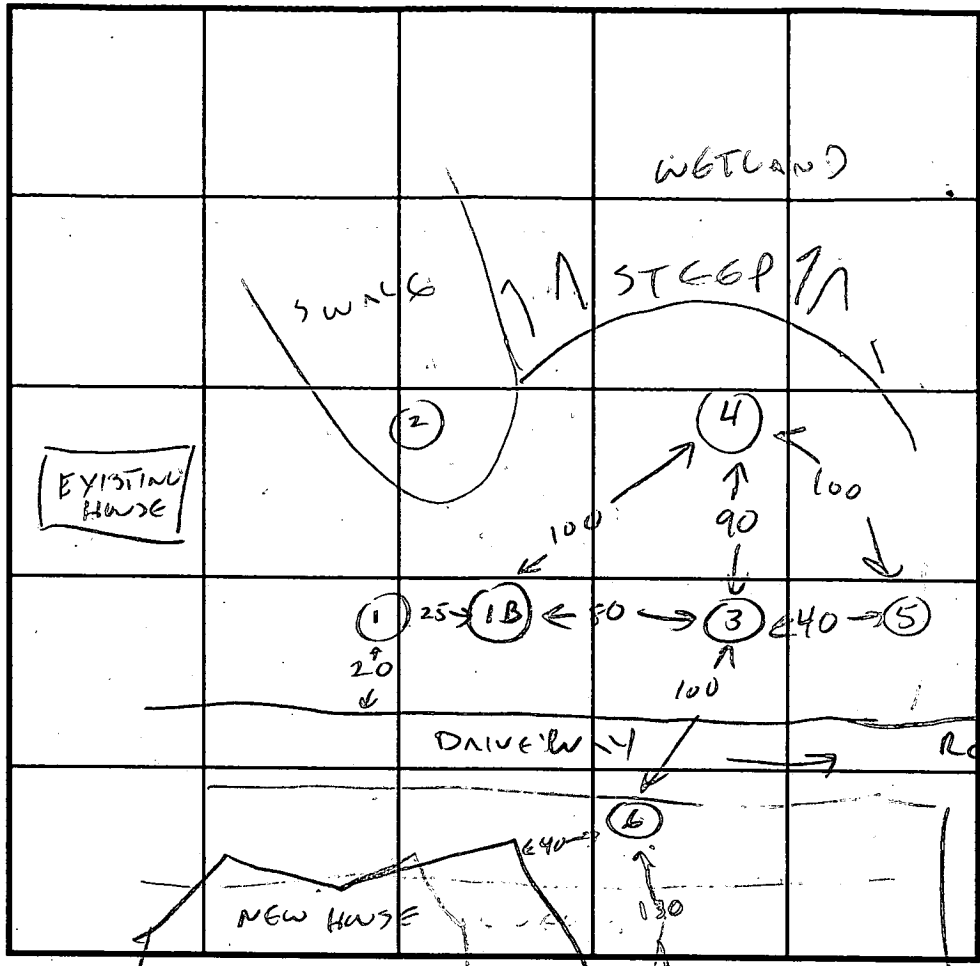 WETLAND
STEEP
SWALE
2
4
EXISTING
HOUSE
100
90
100
1
25
1B
3
40
5
20
100
DRIVEWAY
6
40
NEW HOUSE